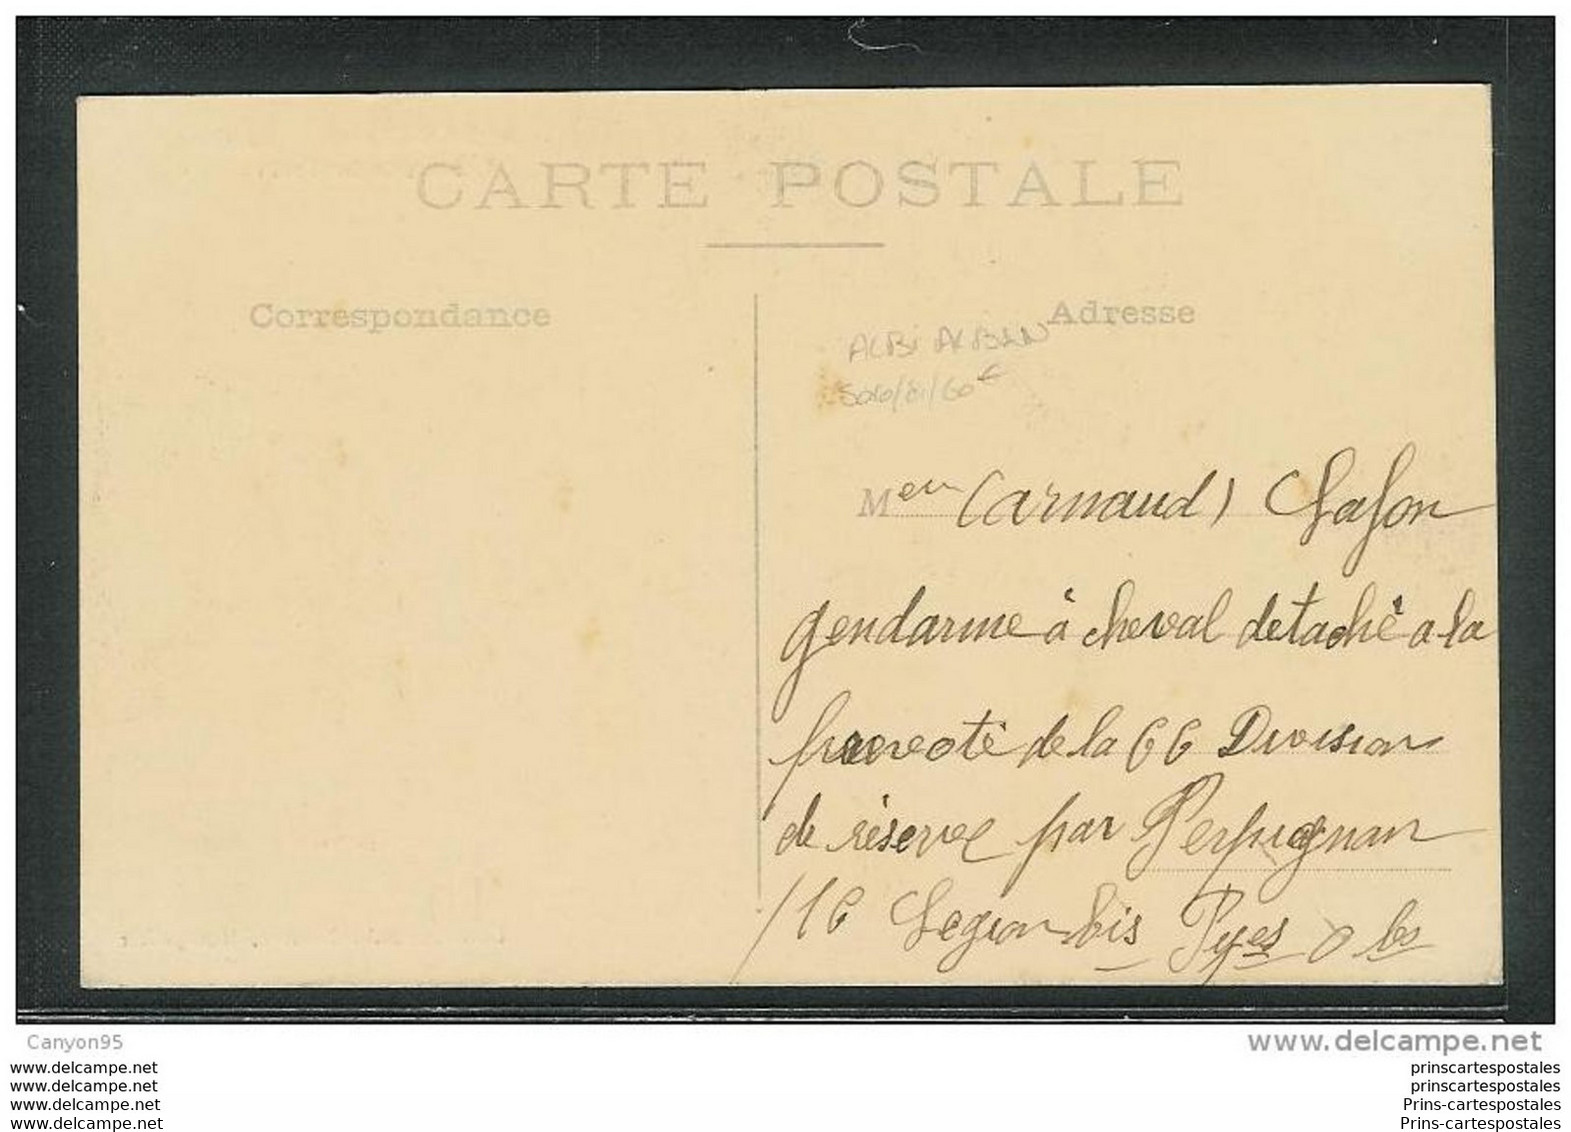 CARTE POSTALE
Correspondance
Adresse
ALBi ALBAN
/81/60€
Meur (arnaud) Lafon
gendarme à cheval detaché a la
prevoté de la 66 Division
de réserve par Perpignan
/16 Legion bis Pyes O les
Canyon95
www.delcampe.net
www.delcampe.com
www.delcampe.com
www.delcampe.com
www.delcampe.com
prinscartespostales
prinscartespostales
Prins-cartespostales
Prins-cartespostales